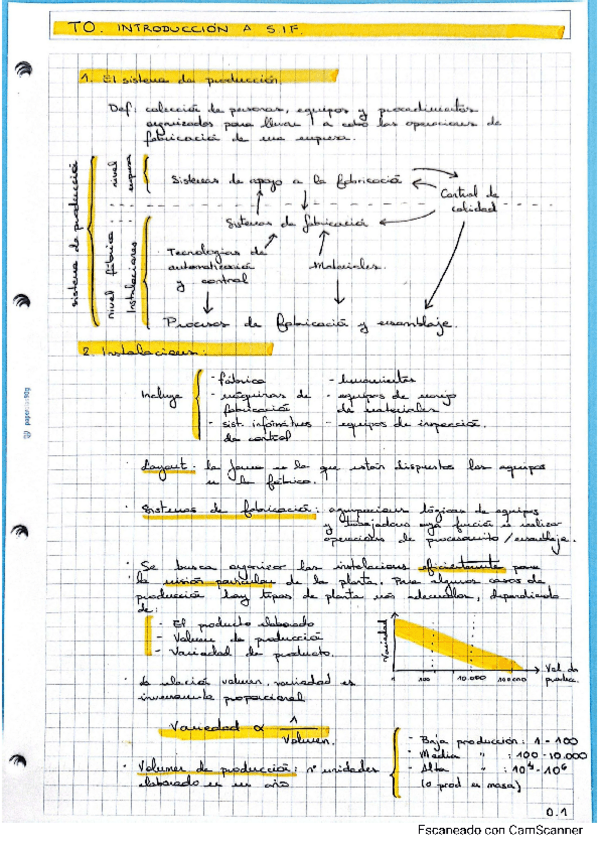 T0. INTRODUCCIÓN A S.I.F.
1. El sistema de producción.
Def: colección de personas, equipos y procedimientos
organizados para llevar a cabo las operaciones de
fabricación de una empresa.
sistema de producción
nivel empresa
nivel fábrica
Instalaciones
Sistemas de apoyo a la fabricación
Control de
calidad
Sistemas de fabricación
Tecnologías de
automatización
y control
Materiales.
Procesos de fabricación y ensamblaje.
2. Instalaciones:
Incluye
- fábrica
- máquinas de
fabricación
- sist. informáticos
de control
- herramientas
- equipos de manejo
de materiales
- equipos de inspección.
· Layout: la forma en la que están dispuestos los equipos
en la fábrica.
· Sistemas de fabricación: agrupaciones lógicas de equipos
y trabajadores cuya función es realizar
operaciones de procesamiento / ensamblaje.
· Se busca organizar las instalaciones eficientemente para
la misión particular de la planta. Para algunos casos de
producción hay tipos de planta más adecuados, dependiendo
de:
- El producto elaborado
- Volumen de producción
- Variedad de producto.
Variedad
1 100 10.000 100.000
Vol. de
produc.
· La relación volumen, variedad es
inversamente proporcional
Variedad ∝ 1 / Volumen.
· Volumen de producción: nº unidades
elaborado en un año
- Baja producción: 1 - 100
- Media " : 100 - 10.000
- Alta " : 10⁴ - 10⁶
(o prod en masa)
0.1
Escaneado con CamScanner